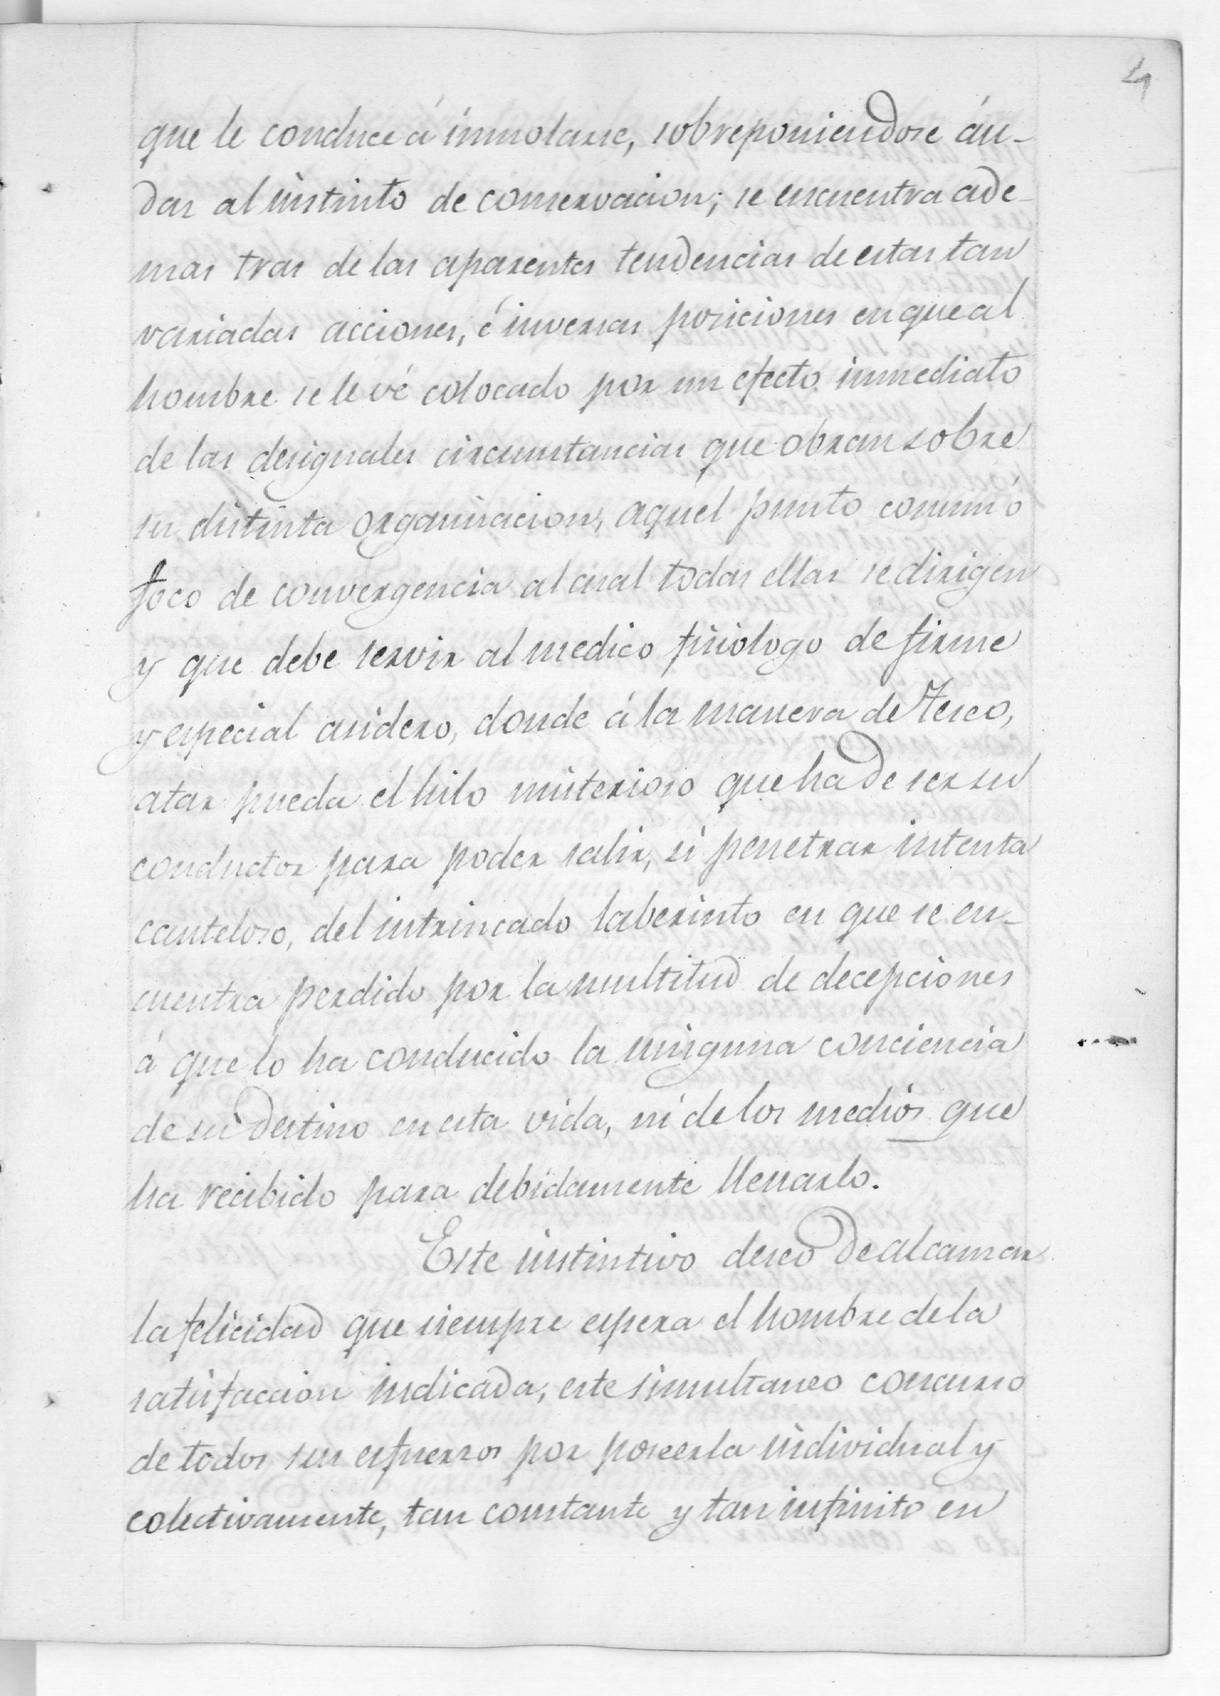 4
que le conduce á inmolarse, sobreponiendose áu-
daz al instinto de conservacion; se encuentra ade-
mas tras de las aparentes tendencias de estas tan
variadas acciones, é inversas posiciones en que al
hombre se le vé colocado por un efecto inmediato
de las desiguales circunstancias que obran sobre
su distinta organizacion, aquel punto comun ó
foco de convergencia al cual todas ellas se dirigen
y que debe servir al medico fisiologo de firme
y especial asidero, donde á la manera de Teseo,
atar pueda el hilo misterioso que ha de ser su
conductor para poder salir, si penetrar intenta
cauteloso, del intrincado laberinto en que se en-
cuentra perdido por la multitud de decepciones
á que lo ha conducido la ninguna conciencia
de su destino en esta vida, ni de los medios que
ha recibido para debidamente llenarlo.
Este instintivo deseo de alcanzar
la felicidad que siempre espera el hombre de la
satisfaccion indicada, este simultaneo concurso
de todos sus esfuerzos por poseerla individual y
colectivamente, tan constante y tan infinito en